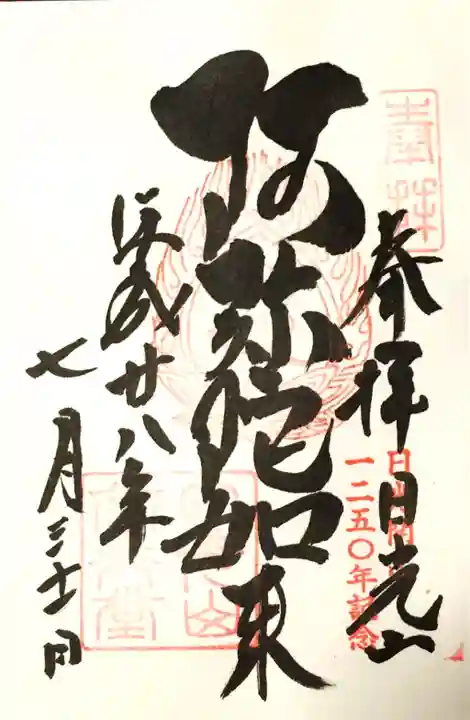 奉拝 日光山
日光開山
一二五〇年記念
阿弥陀如来
平成廿八年
七月三十一日
奉拝